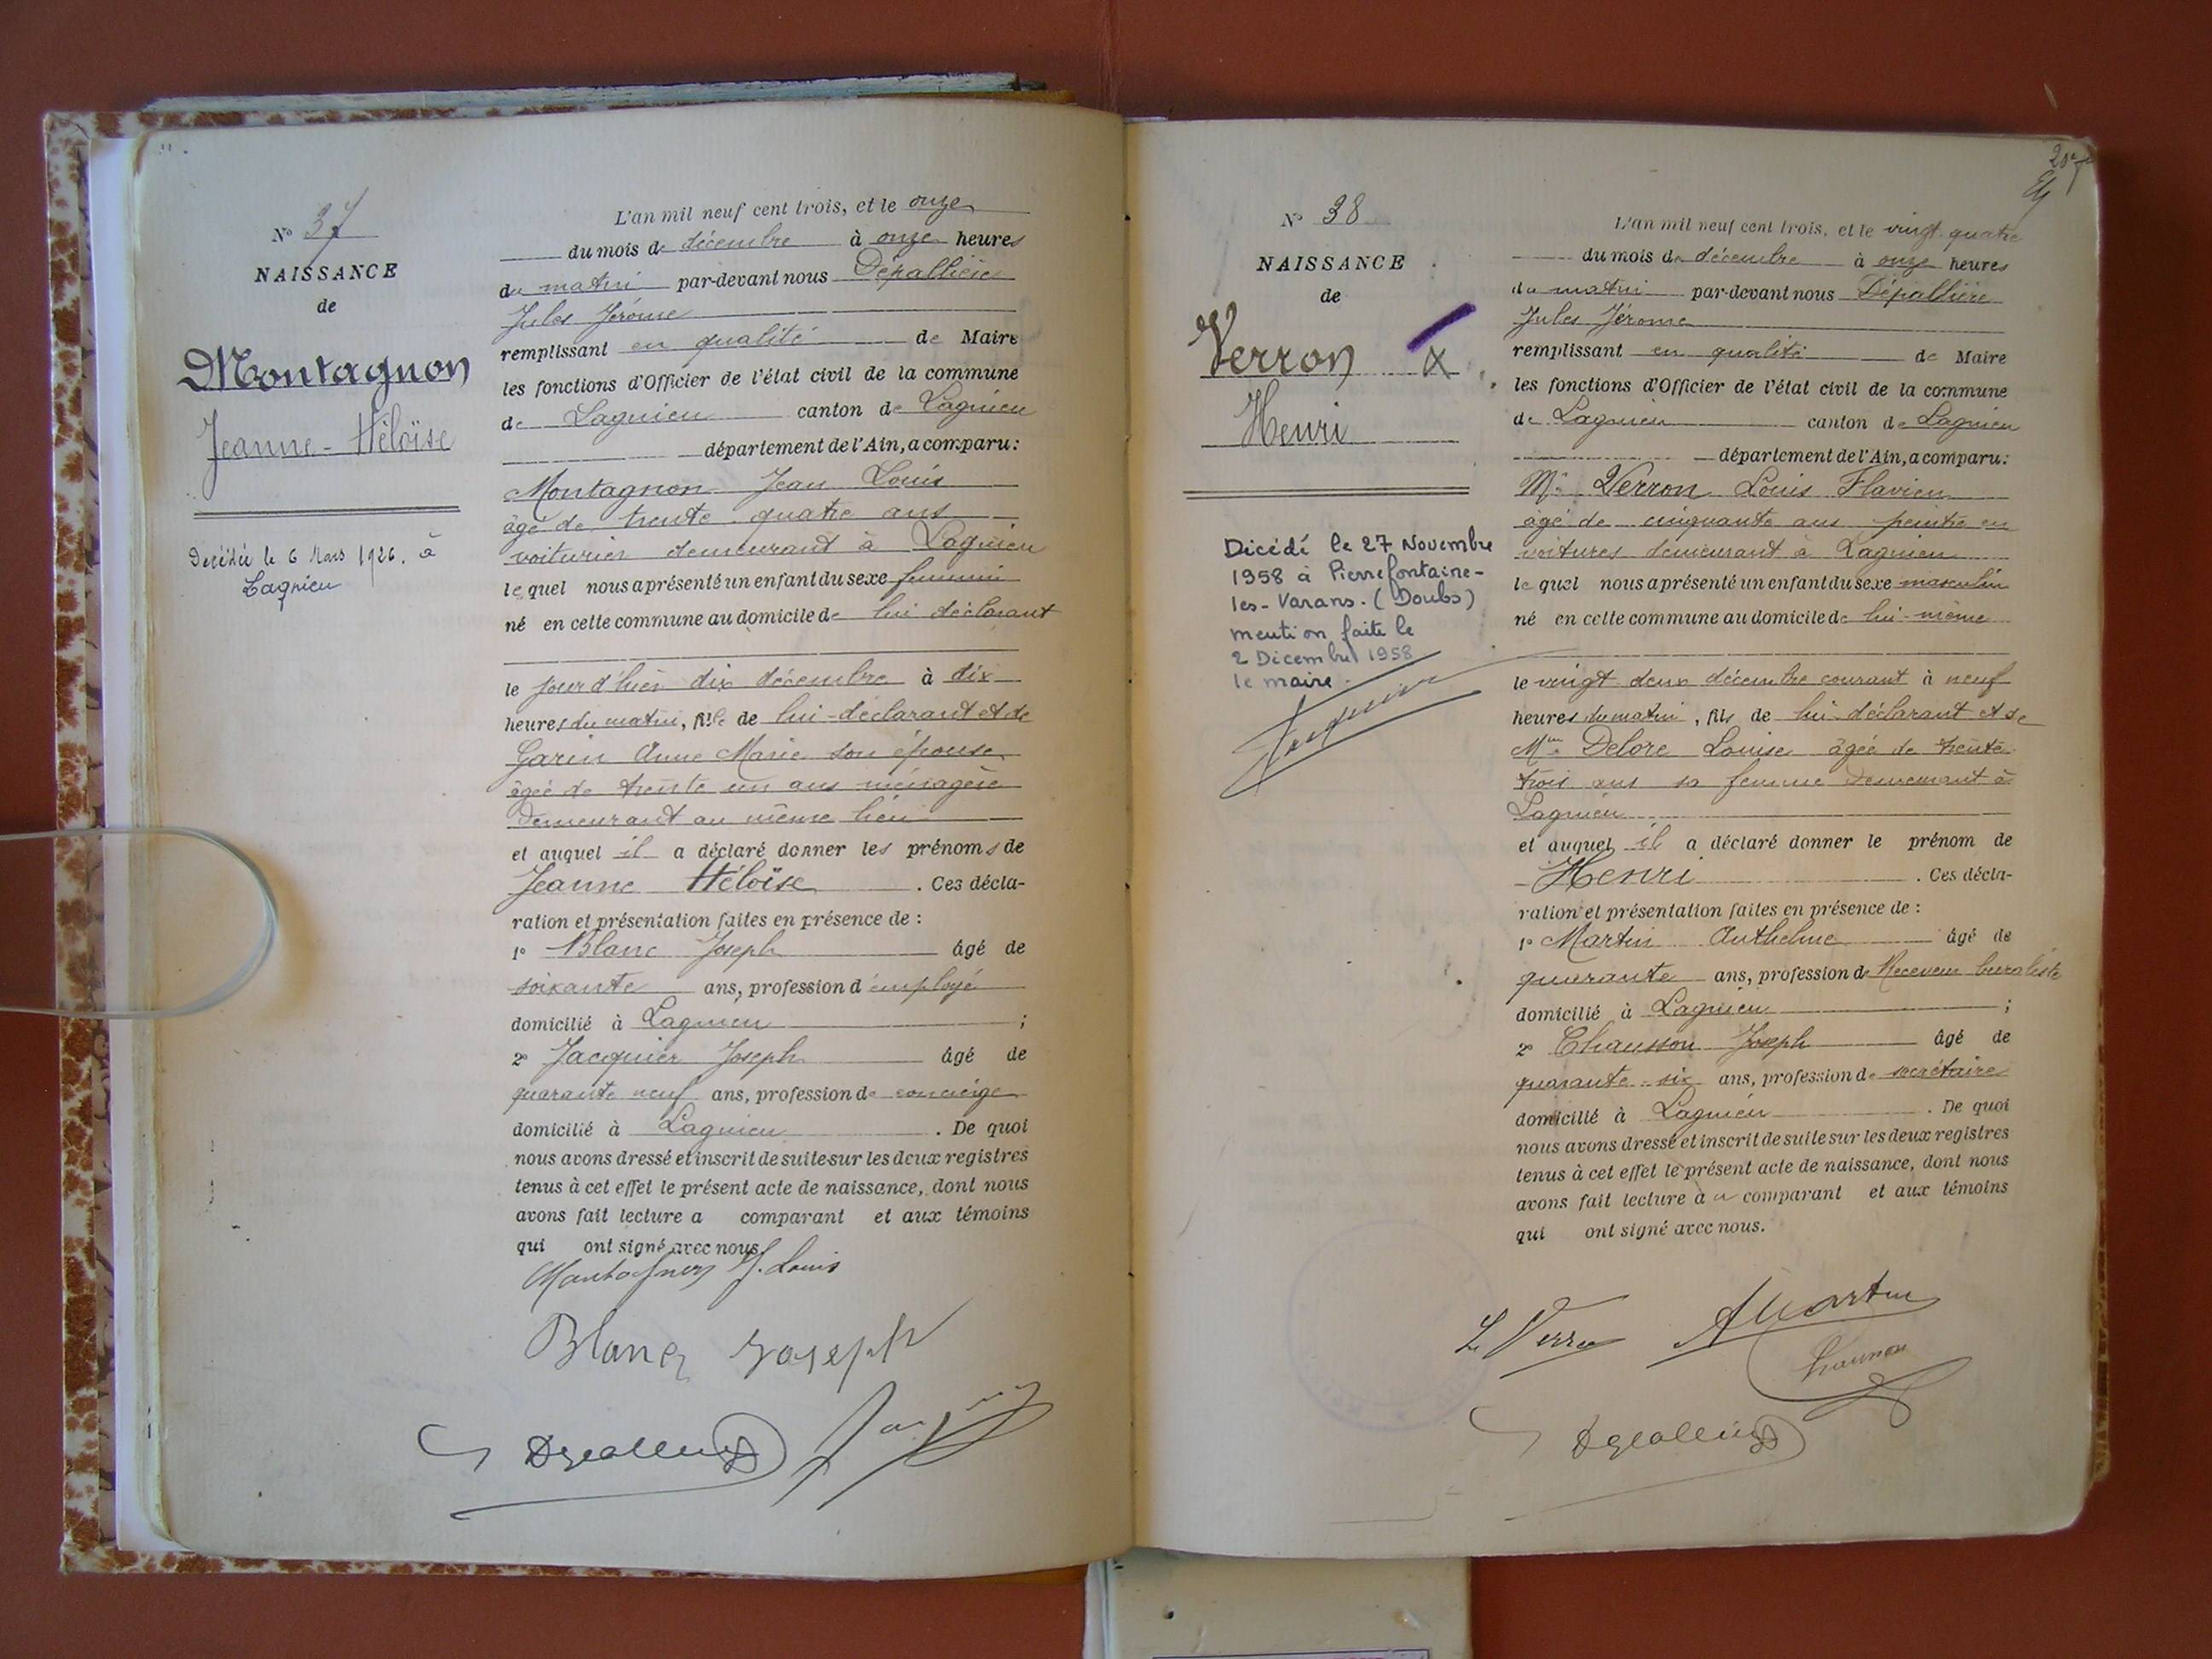 N° 37
NAISSANCE
de
Montagnon
Jeanne-Héloïse
Décédée le 6 Mars 1926. à
Lagnieu
L'an mil neuf cent trois, et le onze
du mois de décembre à onze heures
du matin par-devant nous Dépallière
Jules Jérôme
remplissant en qualité de Maire
les fonctions d'Officier de l'état civil de la commune
de Lagnieu canton de Lagnieu
département de l'Ain, a comparu:
Montagnon Jean Louis
âgé de trente quatre ans
voiturier demeurant à Lagnieu
lequel nous a présenté un enfant du sexe féminin
né en cette commune au domicile de lui déclarant
le jour d'hier dix décembre à dix
heures du matin, fille de lui-déclarant et de
Garin Anne Marie son épouse
âgée de trente un ans ménagère
demeurant au même lieu
et auquel il a déclaré donner les prénoms de
Jeanne Héloïse. Ces décla-
ration et présentation faites en présence de :
1° Blanc Joseph âgé de
soixante ans, profession d'employé
domicilié à Lagnieu ;
2° Jacquier Joseph âgé de
quarante neuf ans, profession de concierge
domicilié à Lagnieu. De quoi
nous avons dressé et inscrit de suite sur les deux registres
tenus à cet effet le présent acte de naissance, dont nous
avons fait lecture a comparant et aux témoins
qui ont signé avec nous.
Montagnon J. Louis
Blanc Joseph
N° 38
NAISSANCE
de
Verron
Henri
Décédé le 27 Novembre
1958 à Pierrefontaine-
les-Varans. (Doubs)
mention faite le
2 Décembre 1958
le maire.
L'an mil neuf cent trois, et le vingt quatre
du mois de décembre à onze heures
du matin par-devant nous Dépallière
Jules Jérome
remplissant en qualité de Maire
les fonctions d'Officier de l'état civil de la commune
de Lagnieu canton de Lagnieu
département de l'Ain, a comparu:
Mr Verron Louis Flavien
âgé de cinquante ans peintre en
voitures demeurant à Lagnieu
lequel nous a présenté un enfant du sexe masculin
né en cette commune au domicile de lui-même
le vingt deux décembre courant à neuf
heures du matin, fils de lui déclarant et de
Mme Delore Louise âgée de trente
trois ans sa femme demeurant à
Lagnieu
et auquel il a déclaré donner le prénom de
Henri. Ces décla-
ration et présentation faites en présence de :
1° Martin Anthelme âgé de
quarante ans, profession de Receveur buraliste
domicilié à Lagnieu ;
2° Chausson Joseph âgé de
quarante-six ans, profession de secrétaire
domicilié à Lagnieu. De quoi
nous avons dressé et inscrit de suite sur les deux registres
tenus à cet effet le présent acte de naissance, dont nous
avons fait lecture à u comparant et aux témoins
qui ont signé avec nous.
L. Verron
A Martin